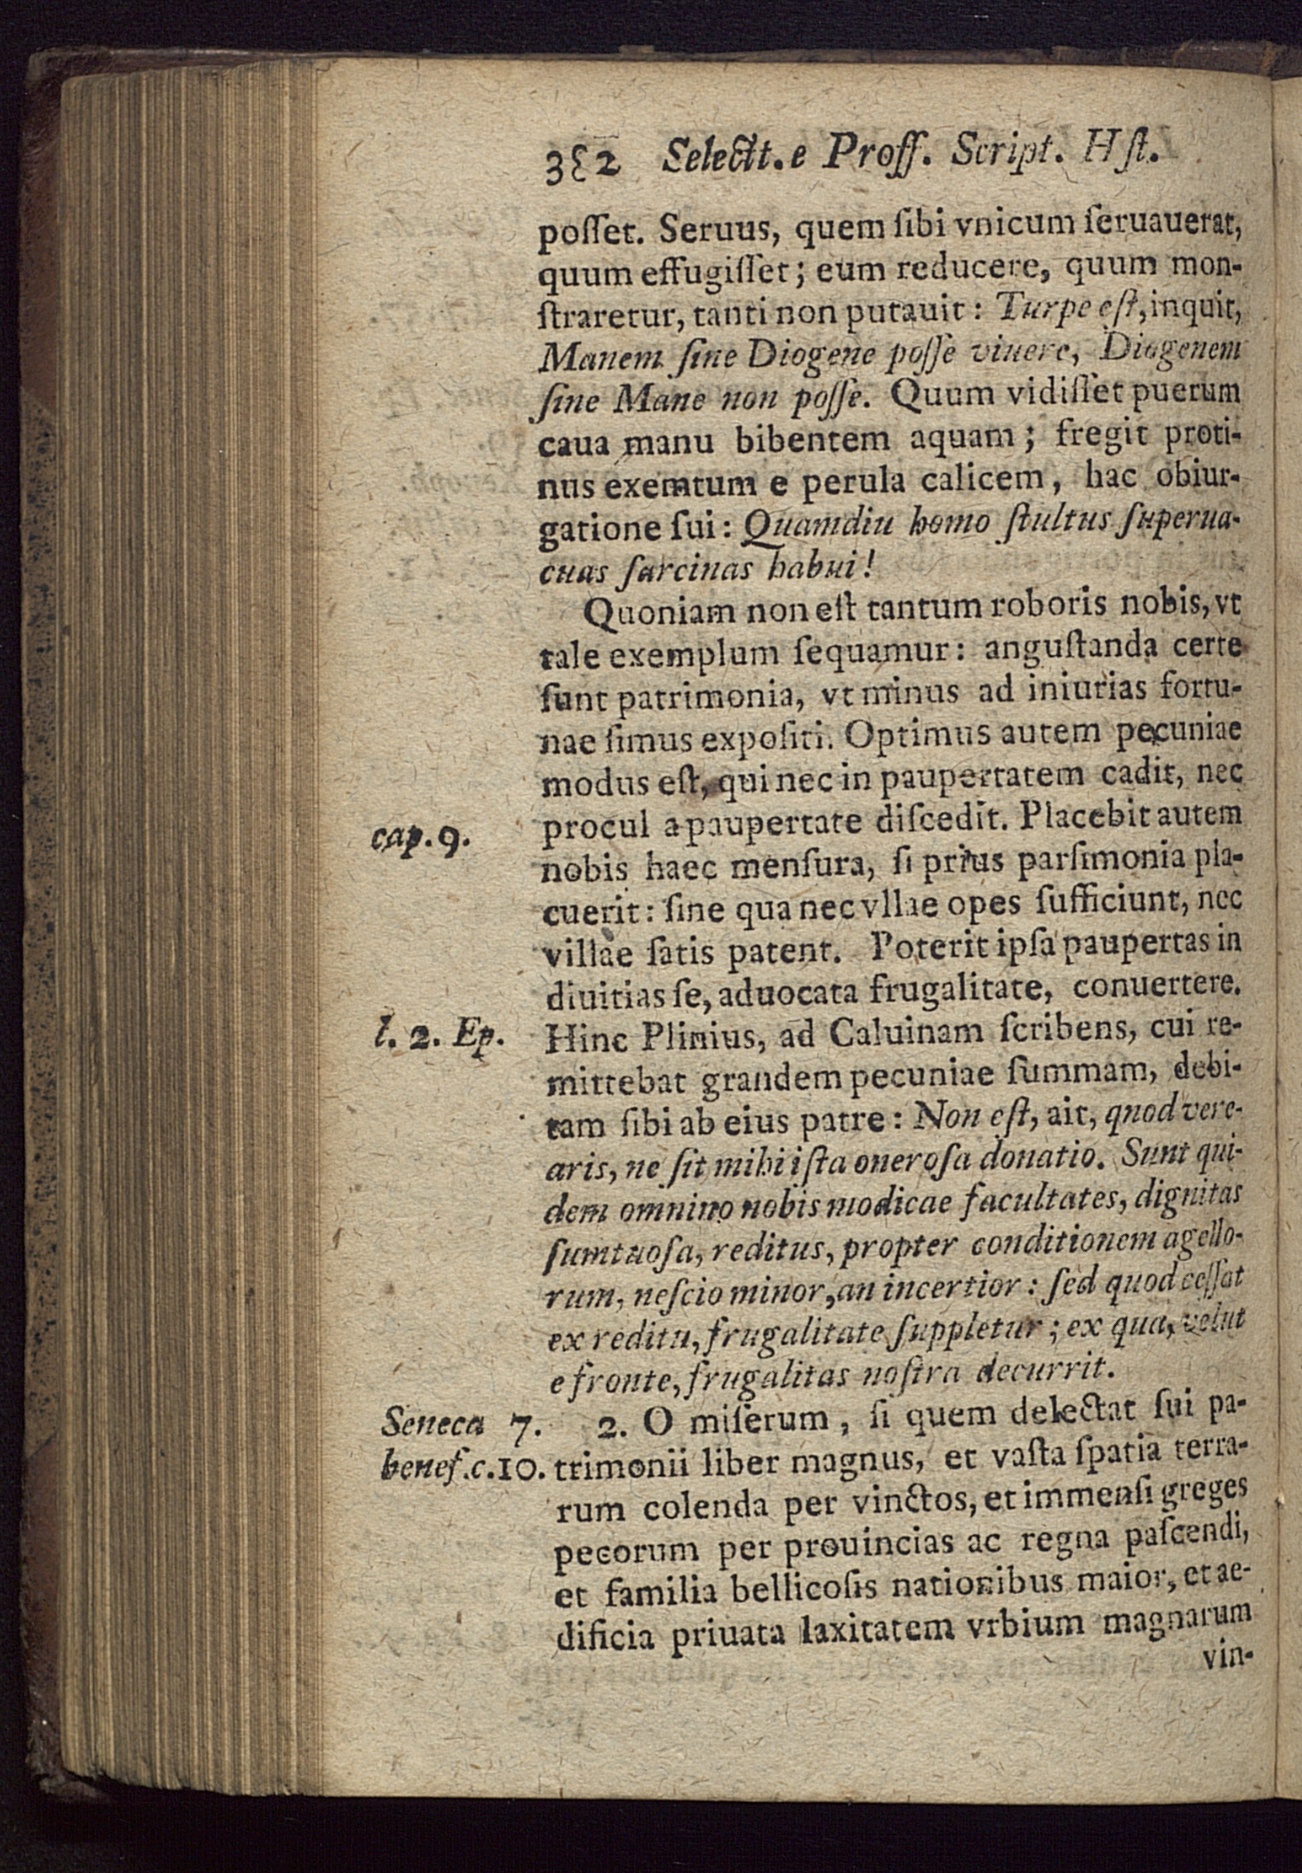 382 Selectt. e Proff. Script. Hſt.
poſſet. Seruus, quem ſibi vnicum ſeruauerat,
quum effugiſſet; eum reducere, quum mon-
ſtraretur, tanti non putauit: Turpe eſt, inquit,
Manem ſine Diogene poſſe viuere, Diogenem
ſine Mane non poſſe. Quum vidiſſet puerum
caua manu bibentem aquam; fregit proti-
nus exemtum e perula calicem, hac obiur-
gatione ſui: Quamdiu homo ſtultus ſuperua-
cuas ſarcinas habui!
Quoniam non eſt tantum roboris nobis, vt
tale exemplum ſequamur: anguſtanda certe
ſunt patrimonia, vt minus ad iniurias fortu-
nae ſimus expoſiti. Optimus autem pecuniae
modus eſt, qui nec in paupertatem cadit, nec
cap. 9. procul a paupertate diſcedit. Placebit autem
nobis haec menſura, ſi prius parſimonia pla-
cuerit: ſine qua nec vllae opes ſufficiunt, nec
villae ſatis patent. Poterit ipſa paupertas in
diuitias ſe, aduocata frugalitate, conuertere.
l. 2. Ep. Hinc Plinius, ad Caluinam ſcribens, cui re-
mittebat grandem pecuniae ſummam, debi-
tam ſibi ab eius patre: Non eſt, ait, quod vere-
aris, ne ſit mihi iſta oneroſa donatio. Sunt qui-
dem omnino nobis modicae facultates, dignitas
ſumtuoſa, reditus, propter conditionem agello-
rum, neſcio minor, an incertior: ſed quod ceſſat
ex reditu, frugalitate ſuppletur; ex qua, velut
e fronte, frugalitas noſtra decurrit.
Seneca 7. 2. O miſerum, ſi quem delectat ſui pa-
benef. c. 10. trimonii liber magnus, et vaſta ſpatia terra-
rum colenda per vinctos, et immenſi greges
pecorum per prouincias ac regna paſcendi,
et familia bellicoſis nationibus maior, et ae-
dificia priuata laxitatem vrbium magnarum
vin-